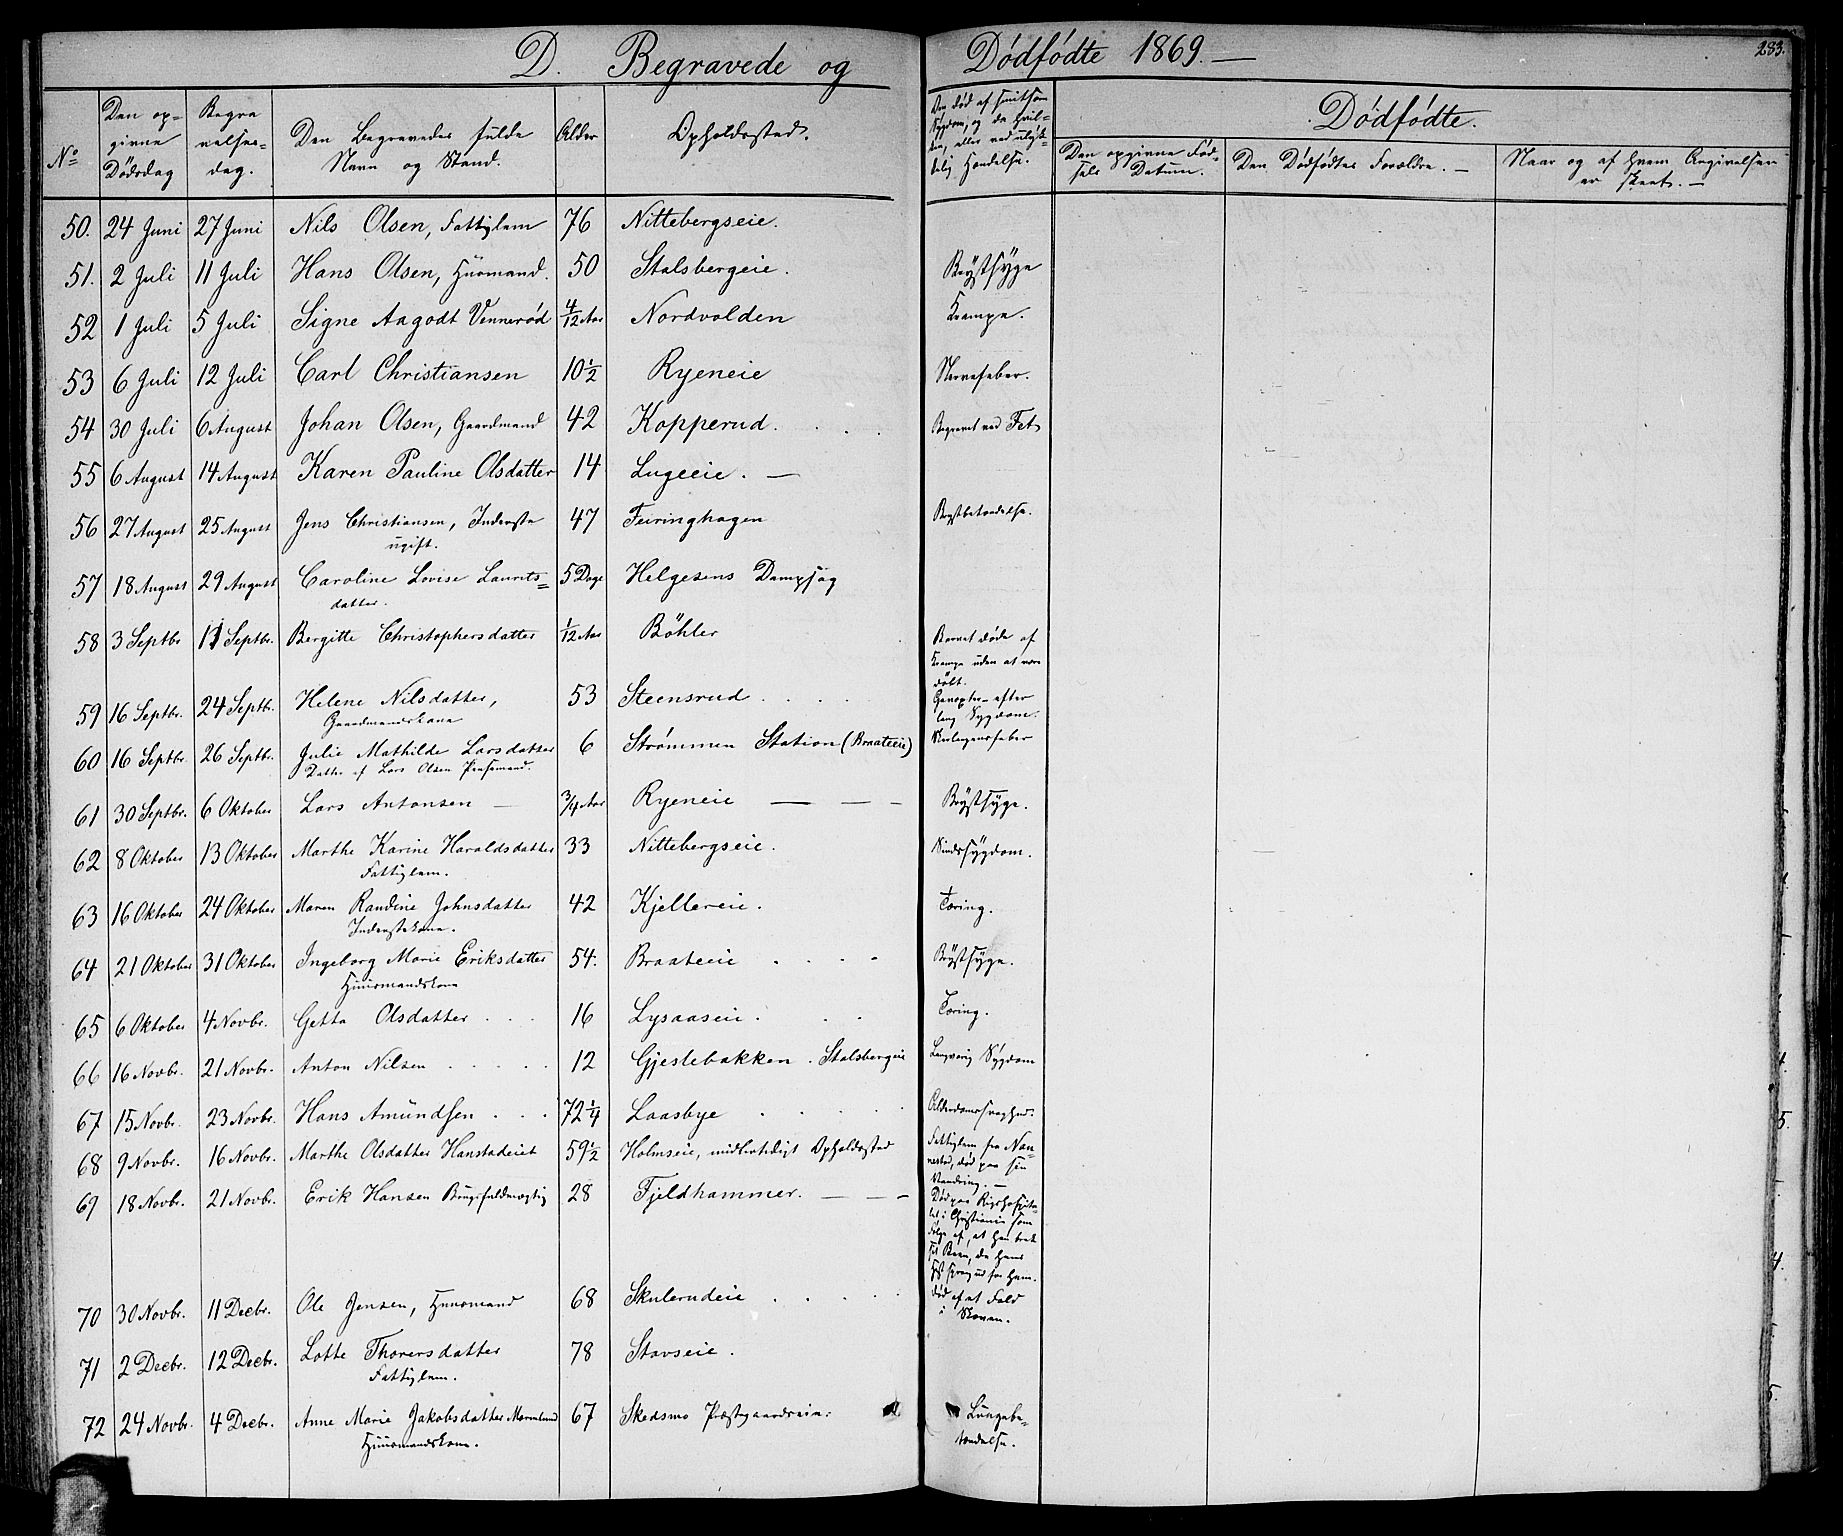 D. Begravede og Dødfødte 1869. —
283.
No
Den opgivne Dødsdag
Begravelsesdag.
Den Begravedes fulde Navn og Stand.
Alder
Opholdssted.
Om død af smitsom Sygdom, og da hvilken, eller ved ulykkelig Hændelse.
Dødfødte.
Den opgivne Fødsels Datum.
Den Dødfødtes Forældre. —
Naar og af hvem Angivelsen er skeet. —
50. 24 Juni 27 Juni Nils Olsen, Fattiglem 76 Nittebergseie.
51. 2 Juli 11 Juli Hans Olsen, Huusmand. 50 Stalsbergeie. Brystsyge
52 1 Juli 5 Juli Signe Aagodt Vennerød 4/12 Aar Nordvolden Krampe.
53 6 Juli 12 Juli Carl Christiansen 10 1/2 Ryeneie Nervefeber.
54 30 Juli 6 August Johan Olsen, Gaardmand 42 Kopperud. Begravet ved Fet
55 6 August 14 August Karen Pauline Olsdatter 14 Lugeeie. —
56 27 August 25 August Jens Christiansen, Inderste 47 Feiringhagen Brystbetændelse.
ugift.
57 18 August 29 August Caroline Lovise Laurits= 5 Dage Helgesens Dampsag
datter.
58 3 Septbr 11 Septbr. Bergitte Christophersdatter 1/12 Aar Bøhler Barnet døde af
Krampe uden at være
døbt.
59 16 Septbr. 24 Septbr. Helene Nilsdatter, 53 Steensrud efter
Gaardmandskone lang Sygdom.
60 16 Septbr. 26 Septbr. Julie Mathilde Larsdatter 6 Strømmen Station (Braateeie) Skarlagensfeber
Datter af Lars Olsen
61 30 Septbr. 6 Oktober Lars Antonsen — 3/4 Aar Ryeneie — — — Brystsyge.
62 8 Oktober 13 Oktober Marthe Karine Haraldsdatter 33 Nittebergseie. Sindssygdom.
Fattiglem.
63 16 Oktober 24 Oktober Maren Randine Johnsdatter 42 Kjellereie. Tæring.
Inderstekone.
64 21 Oktober 31 Oktober Ingeborg Marie Eriksdatter 54. Braateeie Brystsyge.
Huusmandskone
65 6 Oktober 4 Novbr. Getta Olsdatter 16 Lysaaseie. Tæring.
66 16 Novbr. 21 Novbr. Anton Nilsen 12 Gjestebakken. Stalsbergeie Langvarig Sygdom
67 15 Novbr. 23 Novbr. Hans Amundsen 72 1/4 Laasbye Alderdomssvaghed.
68 9 Novbr. 16 Novbr. Marthe Olsdatter Hanstadeiet 59 1/2 Holmseie, midlertidigt Opholdssted Fattiglem fra Nan-
nestad, død paa sin
Vandring. —
69 18 Novbr. 21 Novbr. Erik Hansen Brugsfuldmægtig 28 Fjeldhammer. — — — Død paa Rigshospita-
let i Christiania som
Følge af, at han brak
sit Been, da hans
Hest sprang ud for ham.
70 30 Novbr. 11 Decbr. Ole Jensen, Huusmand 68 Skulerudeie Død af at Fald
i Skoven.
71 2 Decbr. 12 Decbr. Lotte Thorersdatter 78 Stavseie.
Fattiglem.
72 24 Novbr. 4 Decbr. Anne Marie Jakobsdatter 67 Skedsmo Præstegaardseie. Lungebe-
Huusmandskone. tændelse.